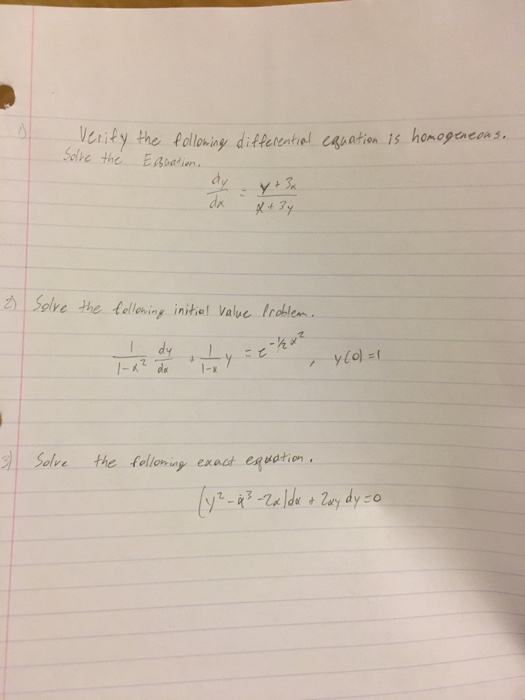 1) Verify the following differential equation is homogeneous.
Solve the Equation.
dy/dx = (y + 3x)/(x + 3y)
2) Solve the following initial value Problem.
1/(1-x²) dy/dx + 1/(1-x) y = e^(-½x²), y(0) = 1
3) Solve the following exact equation.
(y² - x³ - 2x)dx + 2xy dy = 0